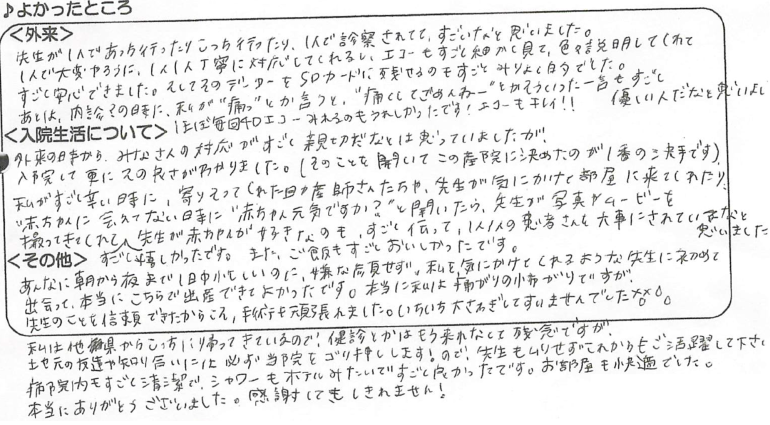 ♪よかったところ
<外来>
先生が1人であっち行ったりこっち行ったり、1人で診察されてて、すごいなと思いました。
1人で大変やろうに、1人1人丁寧に対応してくれるし、エコーもすごく細かく見て、色々説明してくれて
すごく安心できました。そしてそのデーターをSDカードに残せるのもすごくみりょく的でした。
あとは、内診の時に、私が"痛っ"とか言うと、"痛くしてごめんねー"とかそういった一言もすごく
優しい人だなと思いました
ほぼ毎回4Dエコーみれるのもうれしかったです!エコーもキレイ!!
<入院生活について>
外来の時から、みなさんの対応がすごく親切だなとは思っていましたが
入院して更にその良さが分かりました。(そのことを聞いてこの産院に決めたのが1番の決手です)
私がすごく辛い時に、寄りそってくれた助産師さんたちや、先生が気にかけて部屋に来てくれたり、
"赤ちゃんに会えてない日時に"赤ちゃん元気ですか?"と聞いたら、先生が写真やムービーを
撮ってきてくれて、先生が赤ちゃんが好きなのも、すごく伝って、1人1人の患者さんを大事にされているなと
思いました
すごく嬉しかったです。また、ご飯もすごくおいしかったです。
<その他>
あんなに朝から夜まで1日中忙しいのに、嫌な顔見せず、私を気にかけてくれるような先生に初めて
出会って、本当にこちらで出産できてよかったです。本当に私は痛がりの小怖がりですが、
先生のことを信頼できたからこそ、手術も頑張れました。いちいち大さわぎしてすいませんでした
私は他県からこっちに帰ってきているので、健診とかはもう来れなくて残念ですが、
地元の友達や知り合いには必ず当院をゴリ押しします!ので、先生もムリせずこれからもご活躍して下さい
病院内もすごく清潔で、シャワーもホテルみたいですごく良かったです。お部屋も快適でした。
本当にありがとうございました。感謝してもしきれません!